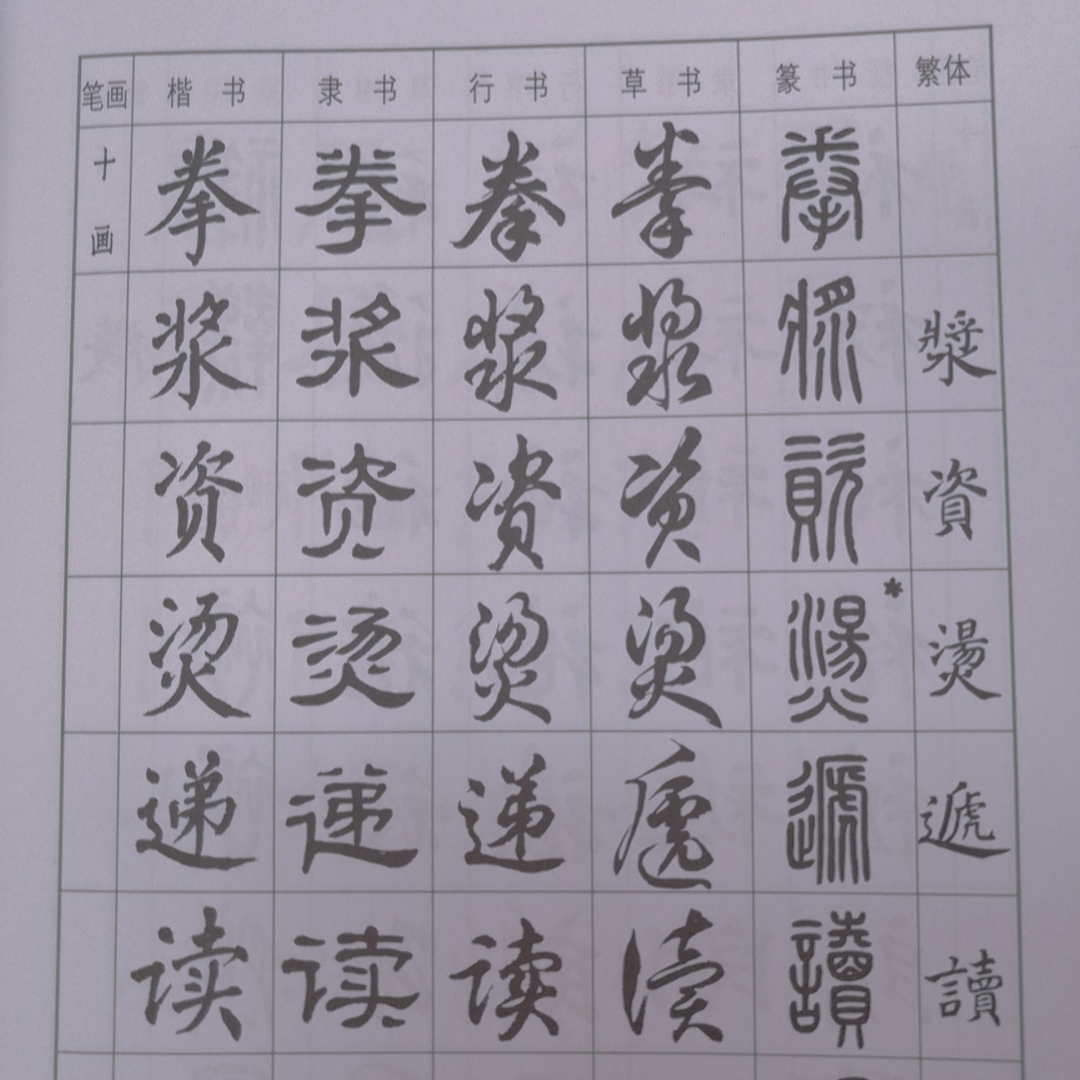 笔画 楷书 隶书 行书 草书 篆书 繁体
十画 拳 拳 拳 拳 拳
浆 浆 漿 漿 漿 漿
资 资 資 資 資 資
烫 烫 燙 燙 燙* 燙
递 递 递 遞 遞 遞
读 读 读 讀 讀 讀